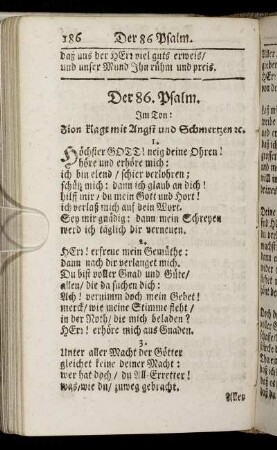 186 Der 86 Psalm.
daß uns der HErr viel guts erweis/
und unser Mund Ihn rühm und preis.
Der 86. Psalm.
Im Ton:
Zion klagt mit Angst und Schmertzen ꝛc.
1.
Höchster GOTT! neig deine Ohren!
höre und erhöre mich:
ich bin elend / schier verlohren;
schütz mich: dann ich glaub an dich!
hilff mir / du mein Gott und Hort!
ich verlaß mich auf dein Wort.
Sey mir gnädig: dann mein Schreyen
werd ich täglich dir verneuen.
2.
HErr! erfreue mein Gemüthe:
dann nach dir verlanget mich.
Du bist voller Gnad und Güte/
allen / die da suchen dich:
Ach! vernimm doch mein Gebet!
merck / wie meine Stimme fleht /
in der Noth / die mich beladen?
HErr! erhöre mich aus Gnaden.
3.
Unter aller Macht der Götter
gleichet keine deiner Macht:
wer hat doch / du All-Erretter!
was / wie du / zuweg gebracht.
Alles